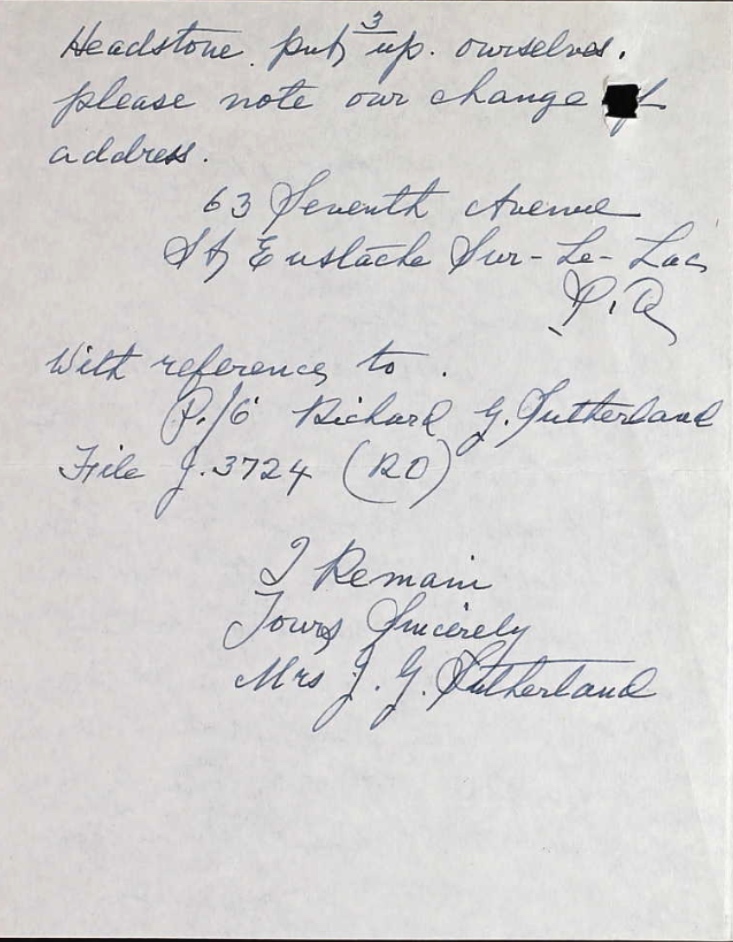 3
Headstone put up. ourselves.
please note our change of
address.
63 Seventh Avenue
St Eustache Sur-Le-Lac
P.Q
With reference to.
P/O Richard G. Sutherland
File J.3724 (RO)
I Remain
Yours Sincerely
Mrs J. G. Sutherland